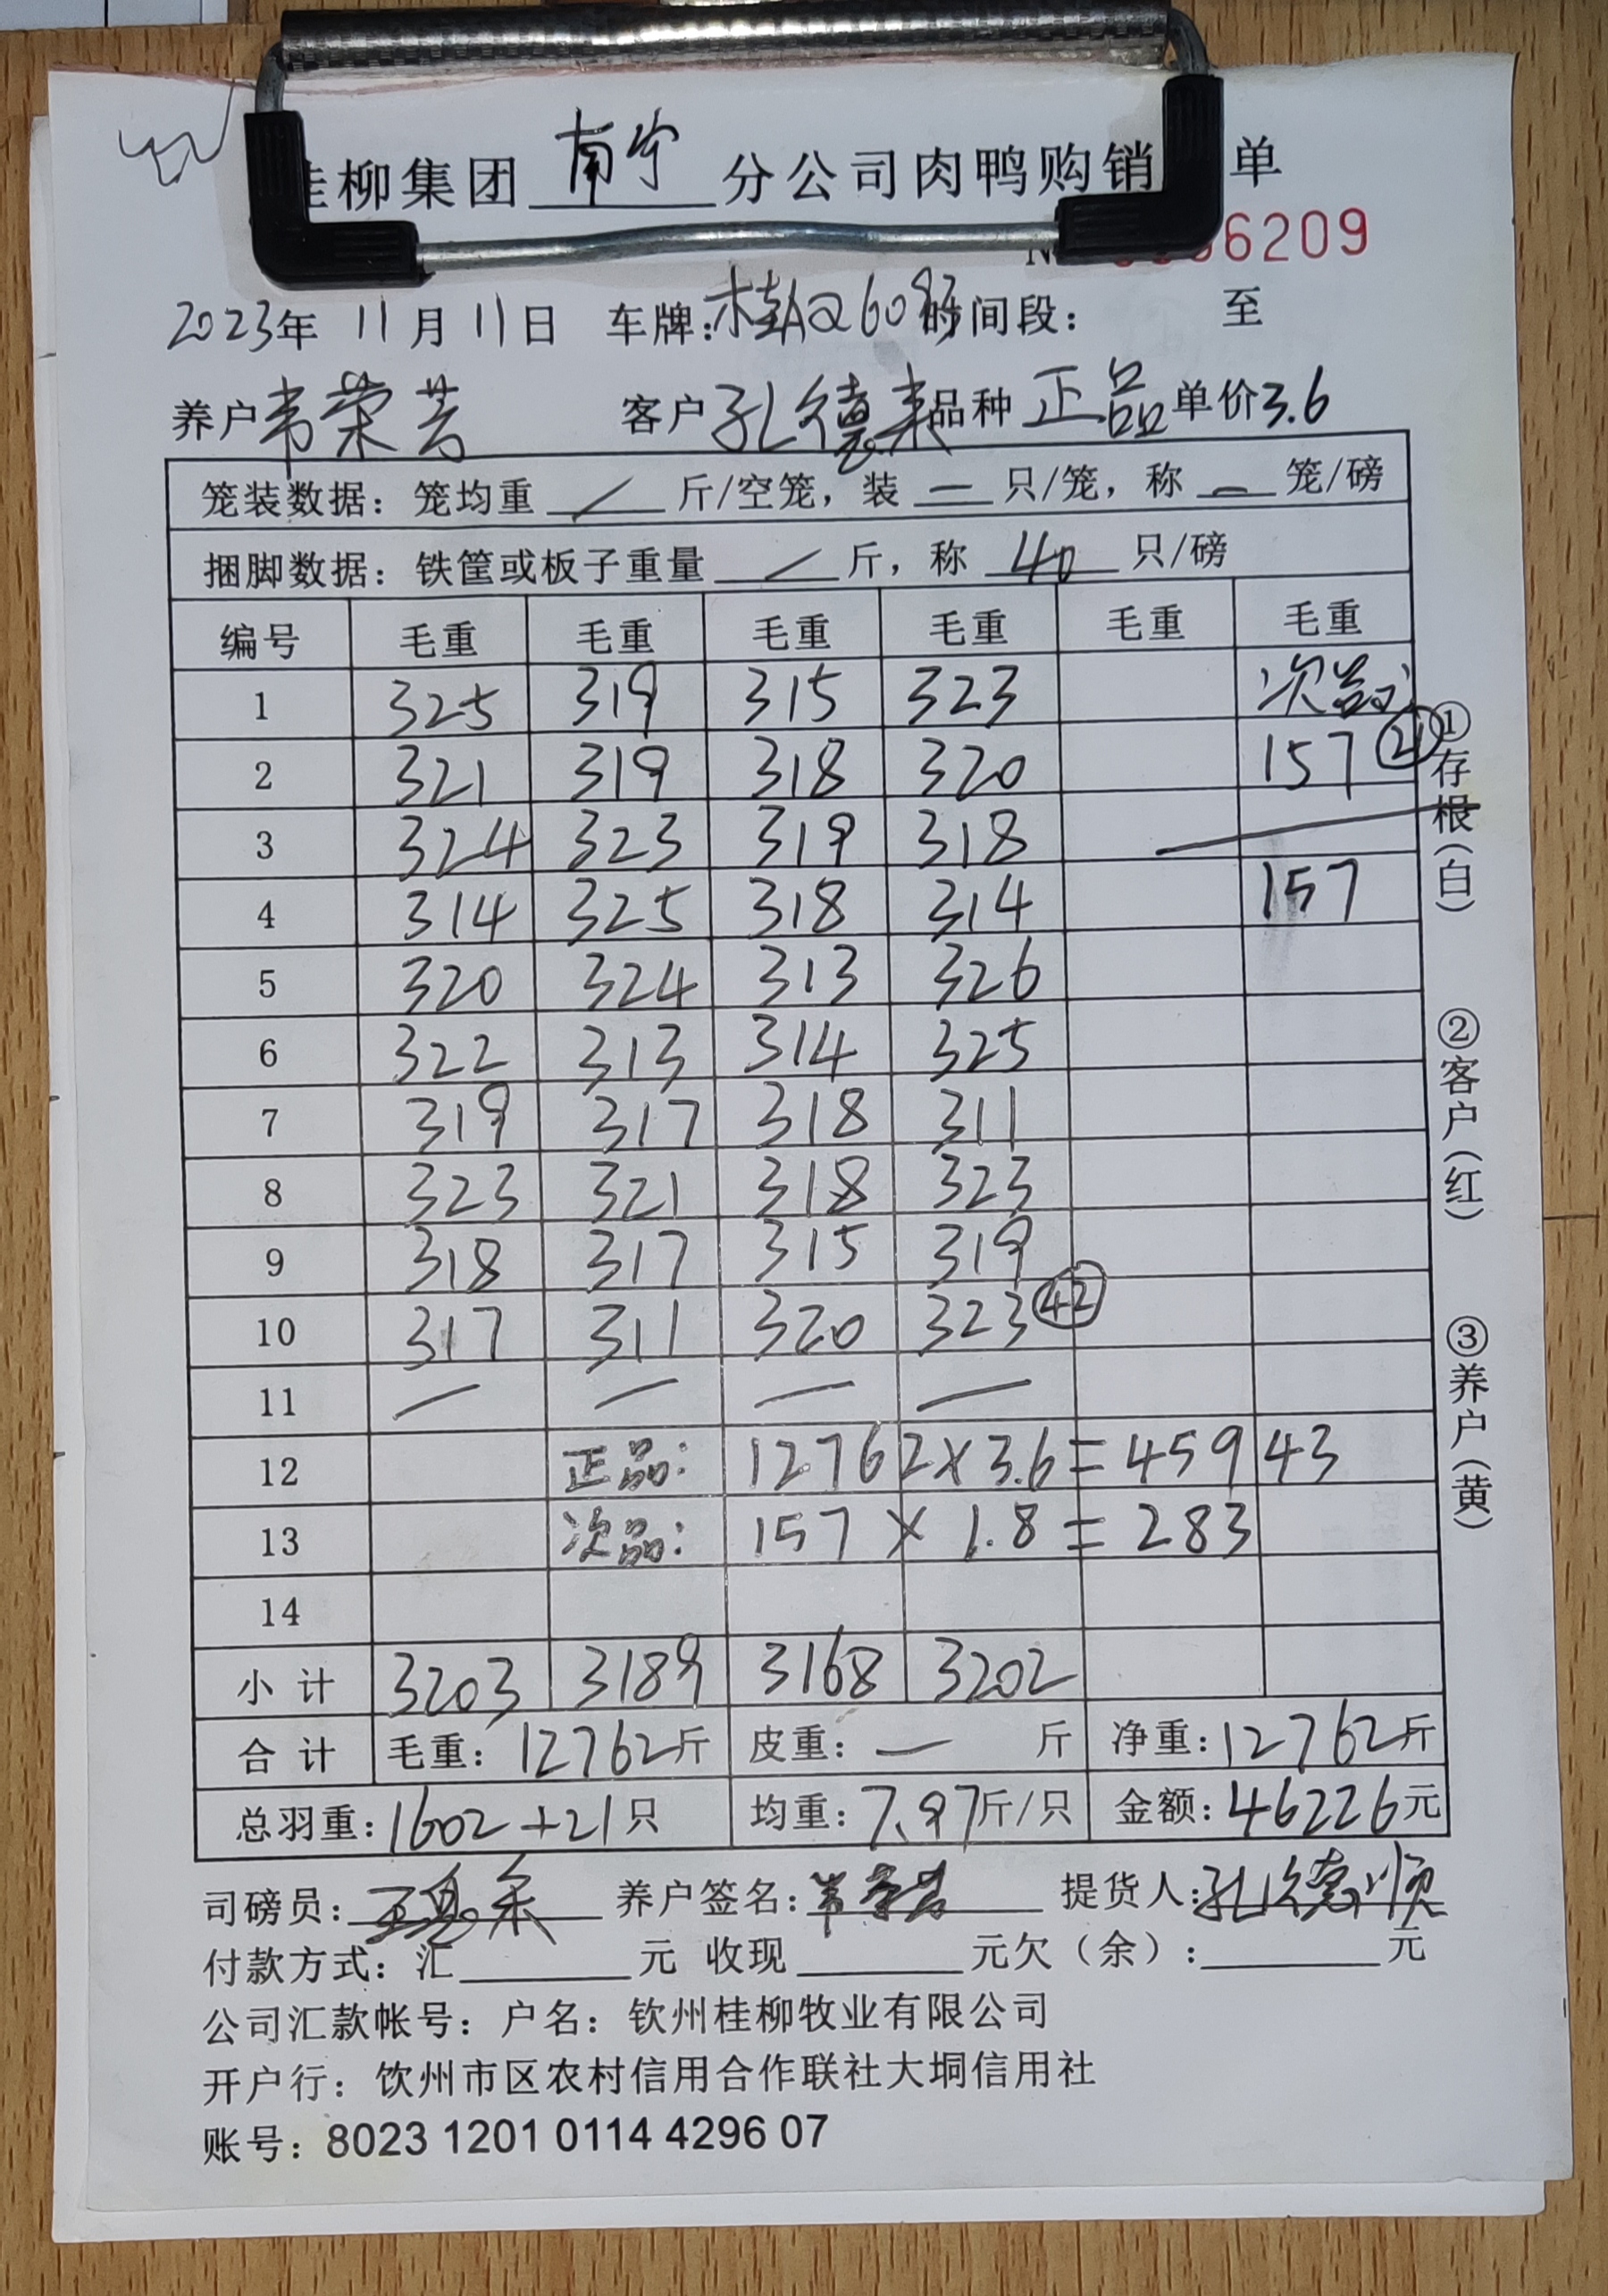 桂柳集团 南宁 分公司肉鸭购销 单
6209
2023年 11月 11日 车牌:桂AQ60 时间段: 至
养户 韦荣芸 客户 孔德来 品种 正品 单价 3.6
笼装数据: 笼均重 / 斤/空笼, 装 一 只/笼, 称 一 笼/磅
捆脚数据: 铁筐或板子重量 / 斤, 称 40 只/磅
编号 毛重 毛重 毛重 毛重 毛重 毛重
1 325 319 315 323 次品
2 321 319 318 320 157 (21)
3 324 323 319 318
4 314 325 318 314 157
5 320 324 313 326
6 322 313 314 325
7 319 317 318 311
8 323 321 318 323
9 318 317 315 319
10 317 311 320 323 (42)
11 一 一 一 一
12 正品: 12762×3.6=45943
13 次品: 157×1.8=283
14
小计 3203 3189 3168 3202
合计 毛重: 12762斤 皮重: 一 斤 净重: 12762斤
总羽重: 1602+21只 均重: 7.97斤/只 金额: 46226元
司磅员: 养户签名: 韦荣芸 提货人: 孔德顺
付款方式: 汇 元 收现 元欠(余): 元
公司汇款帐号: 户名: 钦州桂柳牧业有限公司
开户行: 钦州市区农村信用合作联社大垌信用社
账号: 8023 1201 0114 4296 07
①存根(白)
②客户(红)
③养户(黄)